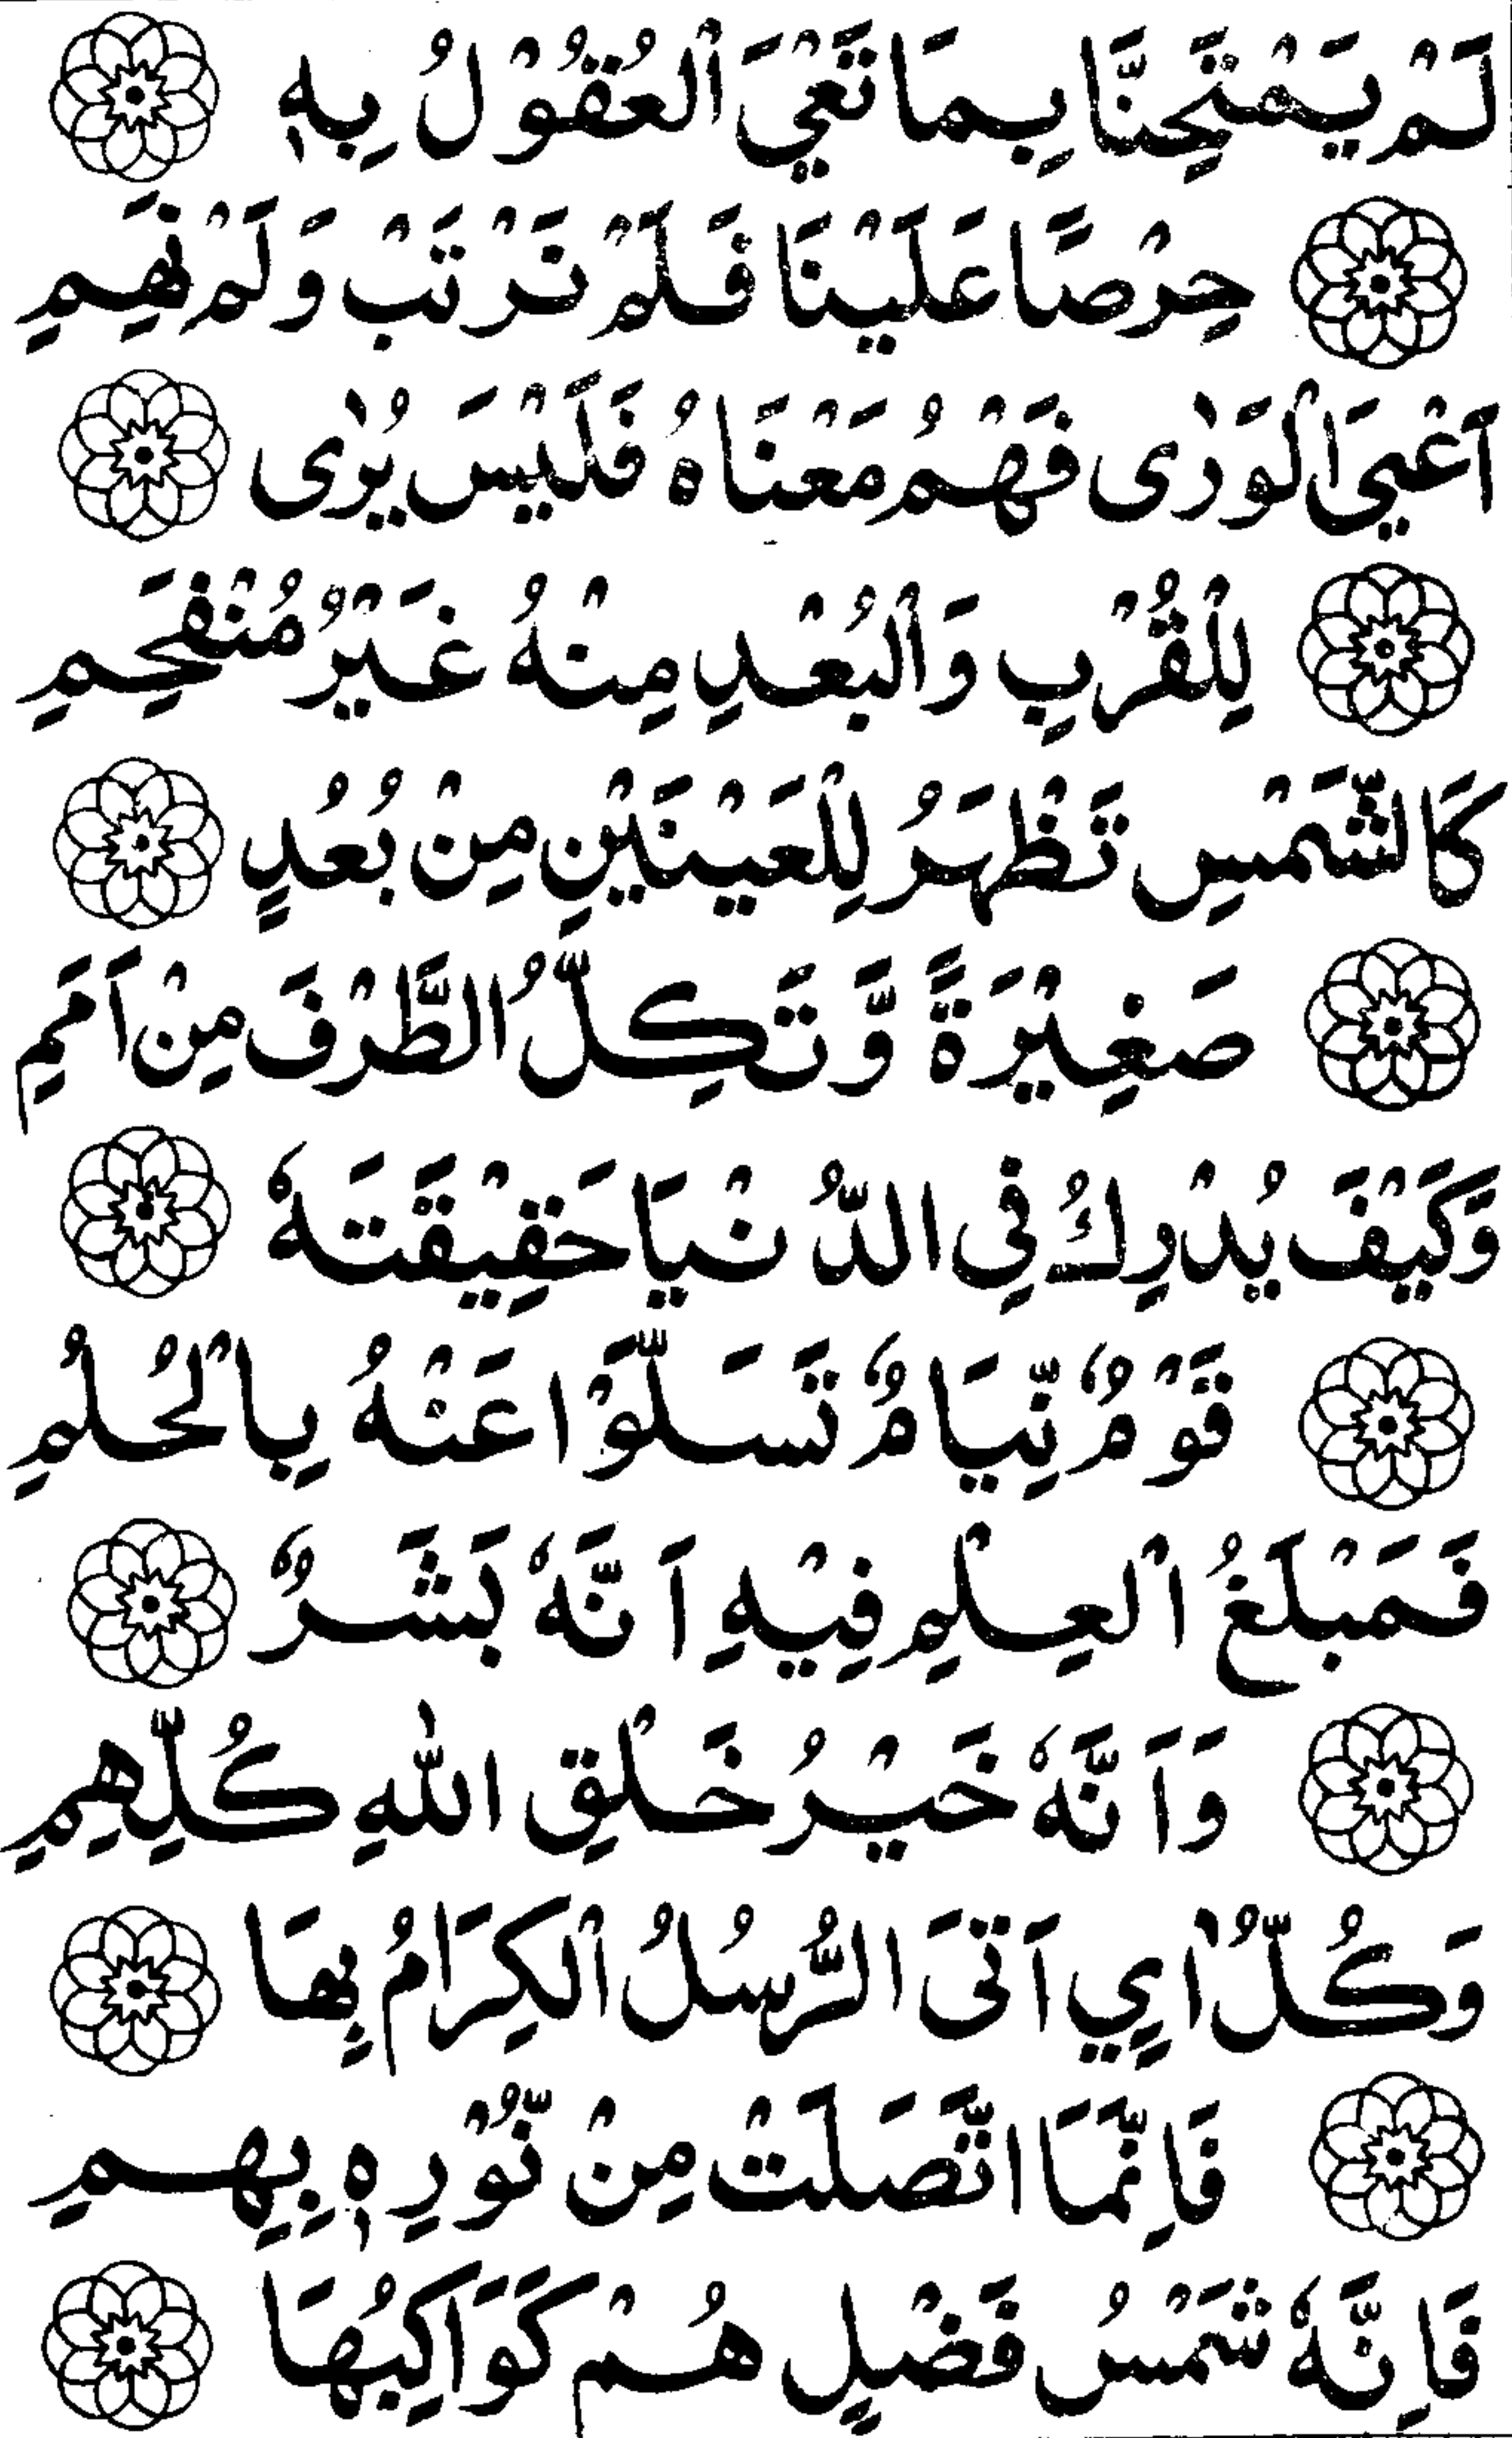 لَمْ يَمْتَحِنَّا بِمَا تَعْيَ الْعُقُوْلُ بِهٖ
حِرْصًا عَلَيْنَا فَلَمْ نَرْتَبْ وَلَمْ نَهِمِ
اَعْيَ الْوَرٰى فَهْمُ مَعْنَاهُ فَلَيْسَ يُرٰى
لِلْقُرْبِ وَالْبُعْدِ مِنْهُ غَيْرُ مُنْفَحِمِ
كَالشَّمْسِ تَظْهَرُ لِلْعَيْنَيْنِ مِنْ بُعُدٍ
صَغِيْرَةً وَّتَكِلُّ الطَّرْفَ مِنْ اَمَمِ
وَكَيْفَ يُدْرِكُ فِي الدُّنْيَا حَقِيْقَتَهٗ
قَوْمٌ نِّيَامٌ تَسَلَّوْا عَنْهُ بِالْحُلُمِ
فَمَبْلَغُ الْعِلْمِ فِيْهِ اَنَّهٗ بَشَرٌ
وَاَنَّهٗ خَيْرُ خَلْقِ اللّٰهِ كُلِّهِمِ
وَكُلُّ اٰيٍ اَتَى الرُّسُلُ الْكِرَامُ بِهَا
فَاِنَّمَا اتَّصَلَتْ مِنْ نُّوْرِهٖ بِهِمِ
فَاِنَّهٗ شَمْسُ فَضْلٍ هُمْ كَوَاكِبُهَا